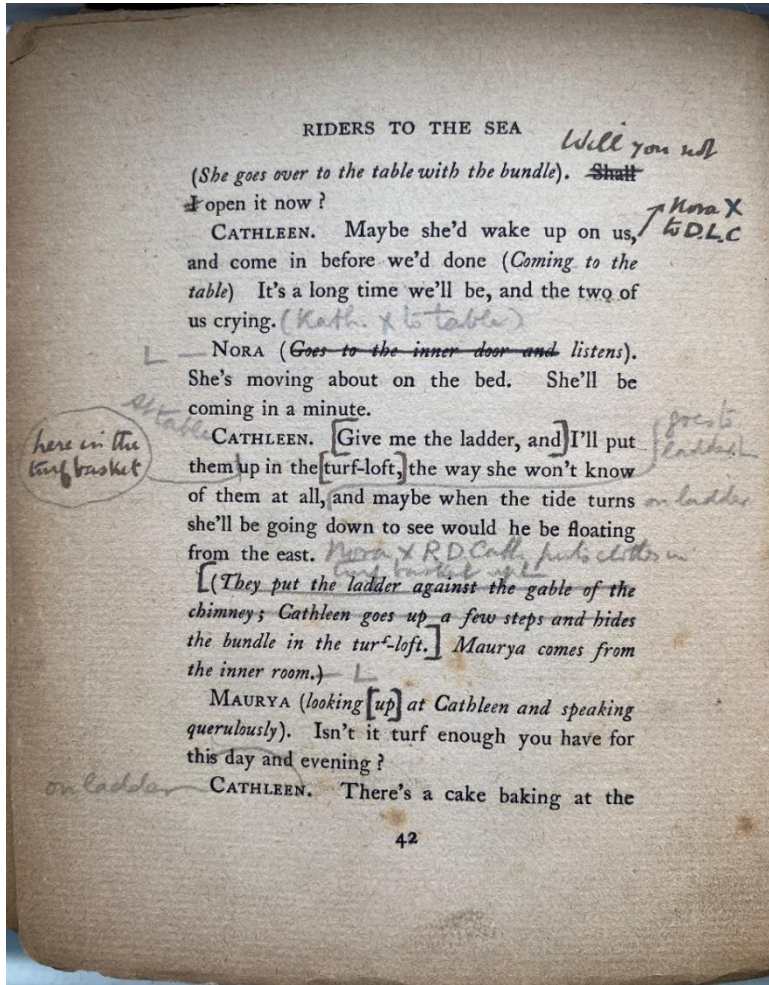 RIDERS TO THE SEA
Will you not
(She goes over to the table with the bundle). Shall
I open it now ?
Nora X
to D.L.C
CATHLEEN. Maybe she'd wake up on us,
and come in before we'd done (Coming to the
table) It's a long time we'll be, and the two of
us crying. (Kath. X to table)
L — NORA (Goes to the inner door and listens).
She's moving about on the bed. She'll be
coming in a minute.
at table
CATHLEEN. [Give me the ladder, and] I'll put
goes to
ladder L
here in the
turf basket
them up in the [turf-loft,] the way she won't know
of them at all, and maybe when the tide turns
on ladder
she'll be going down to see would he be floating
from the east. Nora X R.D. Cath. puts clothes in
turf basket up L
[(They put the ladder against the gable of the
chimney; Cathleen goes up a few steps and hides
the bundle in the turf-loft.] Maurya comes from
the inner room.) — L
MAURYA (looking [up] at Cathleen and speaking
querulously). Isn't it turf enough you have for
this day and evening ?
on ladder
CATHLEEN. There's a cake baking at the
42